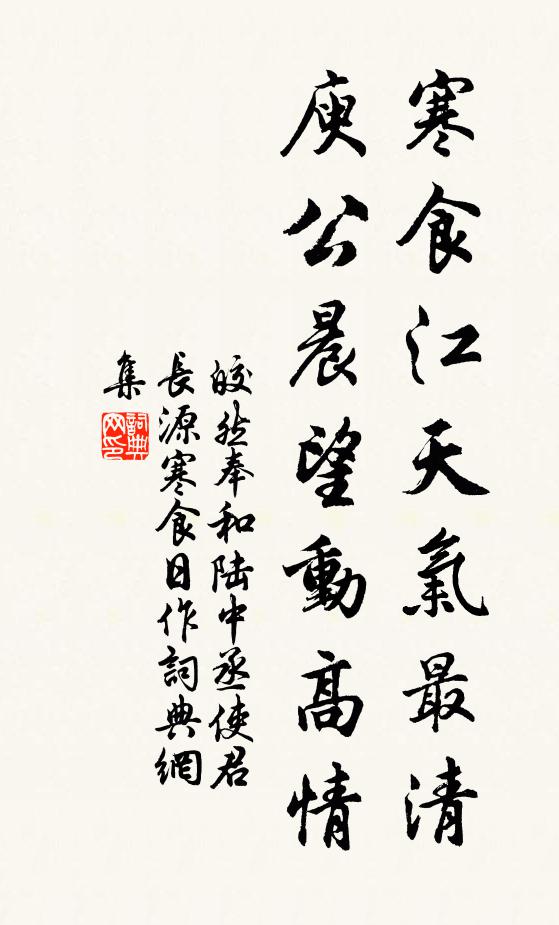 寒食江天氣最清
庾公晨望動高情
皎然奉和陆中丞使君
長源寒食日作詞典網
集
詞典
网印